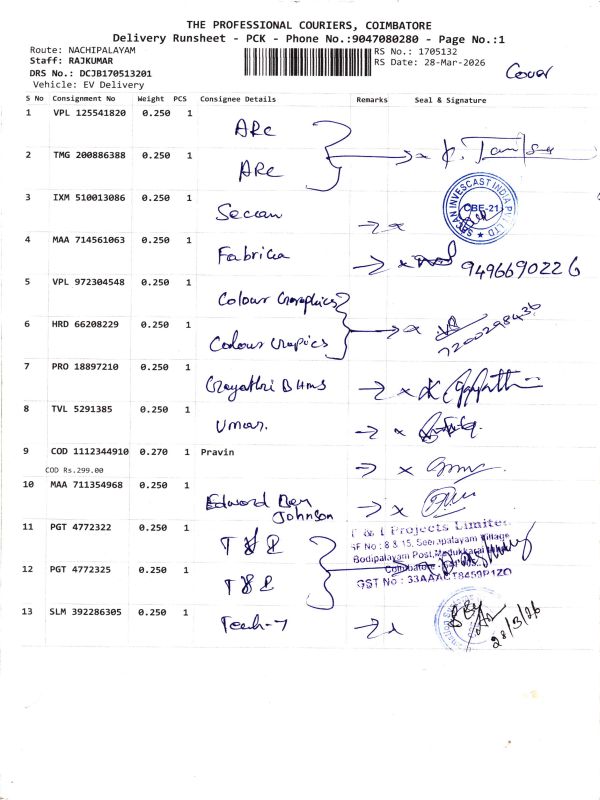 THE PROFESSIONAL COURIERS, COIMBATORE
Delivery Runsheet - PCK - Phone No.:9047080280 - Page No.:1
Route: NACHIPALAYAM
RS No.: 1705132
Staff: RAJKUMAR
RS Date: 28-Mar-2026
DRS No.: DCJB170513201
Cover
Vehicle: EV Delivery
S No Consignment No Weight PCS Consignee Details Remarks Seal & Signature
1 VPL 125541820 0.250 1 ARC
2 TMG 200886388 0.250 1 ARC
3 IXM 510013086 0.250 1 Seccan
SACAN INVESCAST INDIA PVT LTD
CBE-21
4 MAA 714561063 0.250 1 Fabrica
9496690226
5 VPL 972304548 0.250 1 Colour Graraphics
6 HRD 66208229 0.250 1 Colour Grapics
7200298436
7 PRO 18897210 0.250 1 Gayathri B Hms
8 TVL 5291385 0.250 1 Umar.
9 COD 1112344910 0.270 1 Pravin
COD Rs.299.00
10 MAA 711354968 0.250 1 Edward Ben
Johnson
11 PGT 4772322 0.250 1 T & I
T & I Projects Limited
SF No : 8 & 15, Seerapalayam Village
Bodipalayam Post, Madukkarai
Coimbatore
GST No : 33AAACT8459P1ZO
12 PGT 4772325 0.250 1 T & I
13 SLM 392286305 0.250 1 Tech-7
28/3/26